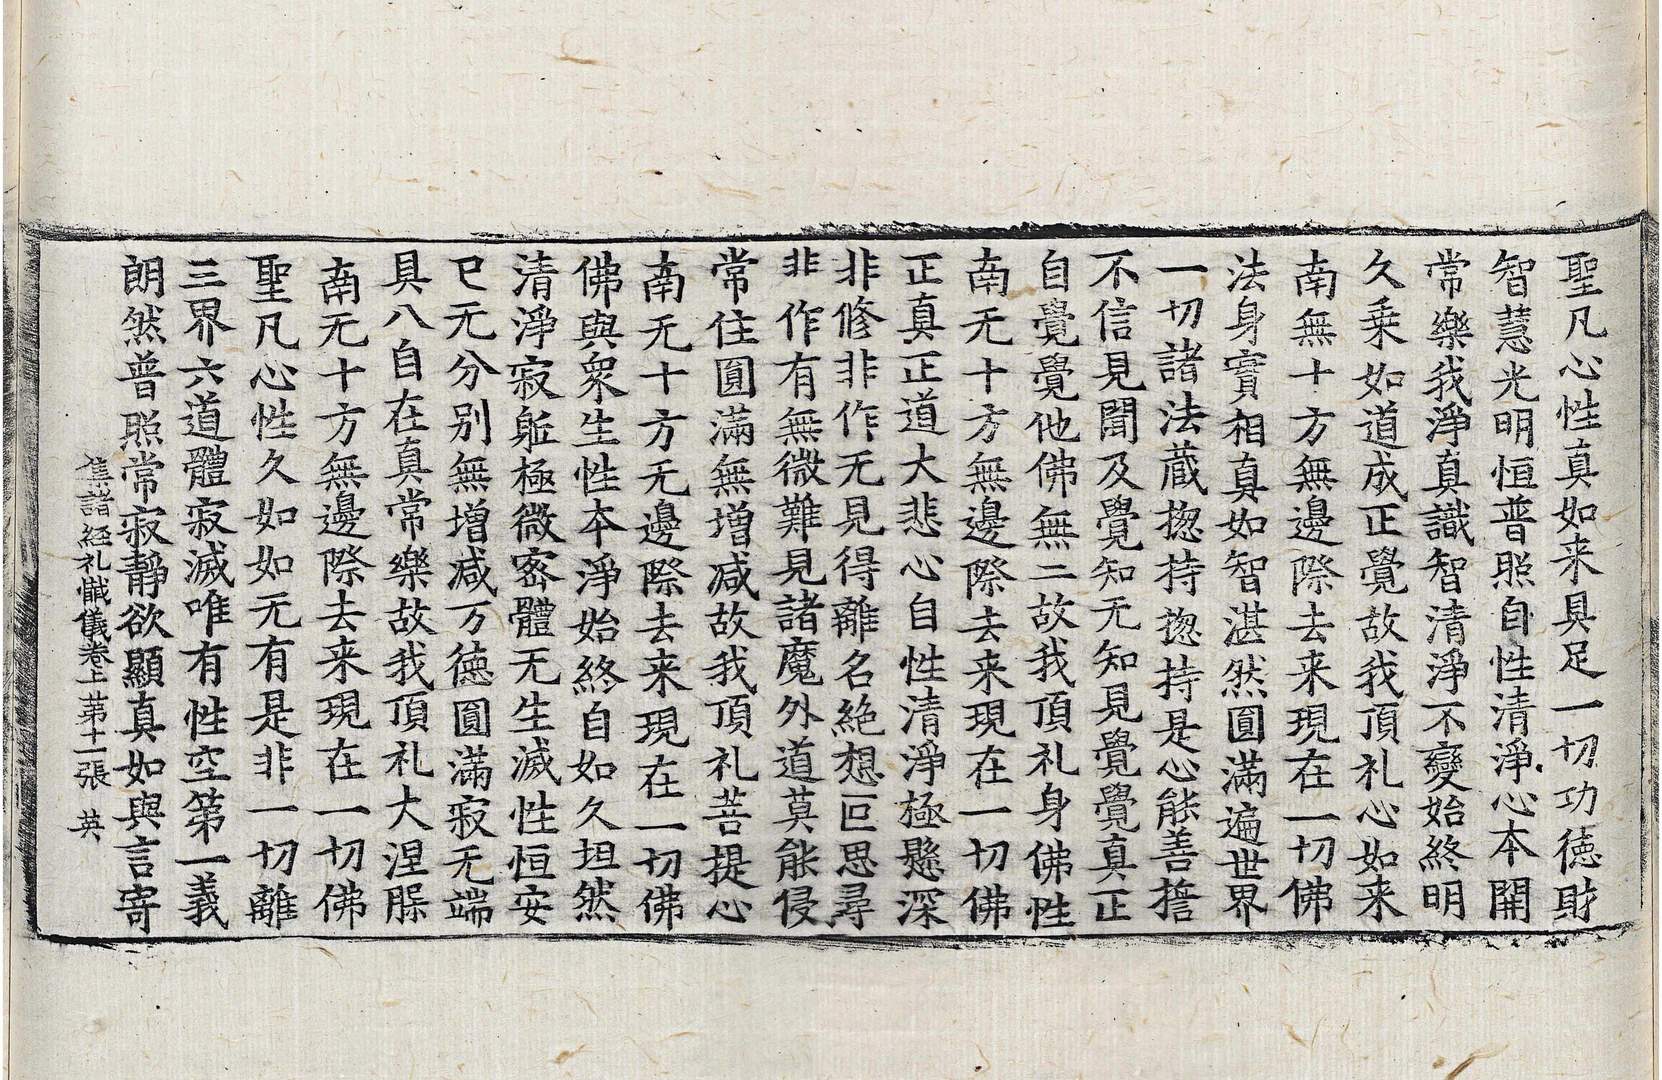 聖凡心性真如来具足一切功德財
智慧光明恒普照自性清淨心本開
常樂我淨真識智清淨不變始終明
久乗如道成正覺故我頂礼心如来
南無十方無邊際去来現在一切佛
法身實相真如智湛然圓滿遍世界
一切諸法蔵揔持揔持是心能善擔
不信見聞及覺知无知見覺覺真正
自覺覺他佛無二故我頂礼身佛性
南无十方無邊際去来現在一切佛
正真正道大悲心自性清淨極懸深
非修非作无見得離名絶想叵思尋
非作有無微難見諸魔外道莫能侵
常住圓滿無增减故我頂礼菩提心
南无十方无邊際去来現在一切佛
佛與衆生性本淨始終自如久坦然
清淨寂䠶極微宻體无生滅性恒安
已无分别無增减万德圓滿寂无端
具八自在真常樂故我頂礼大涅槃
南无十方無邊際去来現在一切佛
聖凡心性久如如无有是非一切離
三界六道體寂滅唯有性空第一義
朗然普照常寂靜欲顯真如與言寄
集諸經礼懴儀卷上苐十一張 英